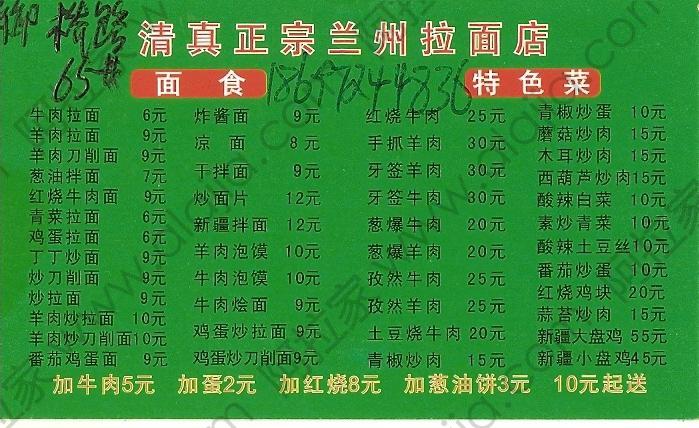 御橋路
65#
清真正宗兰州拉面店
面食
18657244836
特色菜
牛肉拉面 6元
羊肉拉面 9元
羊肉刀削面 9元
葱油拌面 7元
红烧牛肉面 9元
青菜拉面 6元
鸡蛋拉面 6元
丁丁炒面 9元
炒刀削面 9元
炒拉面 9元
羊肉炒拉面 10元
羊肉炒刀削面 10元
番茄鸡蛋面 9元
炸酱面 9元
凉面 8元
干拌面 9元
炒面片 12元
新疆拌面 12元
羊肉泡馍 10元
牛肉泡馍 10元
牛肉烩面 9元
鸡蛋炒拉面 9元
鸡蛋炒刀削面 9元
红烧牛肉 25元
手抓羊肉 30元
牙签羊肉 30元
牙签牛肉 30元
葱爆牛肉 20元
葱爆羊肉 20元
孜然牛肉 25元
孜然羊肉 25元
土豆烧牛肉 20元
青椒炒肉 15元
青椒炒蛋 10元
蘑菇炒肉 15元
木耳炒肉 15元
西葫芦炒肉 15元
酸辣白菜 10元
素炒青菜 10元
酸辣土豆丝 10元
番茄炒蛋 10元
红烧鸡块 20元
蒜苔炒肉 15元
新疆大盘鸡 55元
新疆小盘鸡 45元
加牛肉5元 加蛋2元 加红烧8元 加葱油饼3元 10元起送